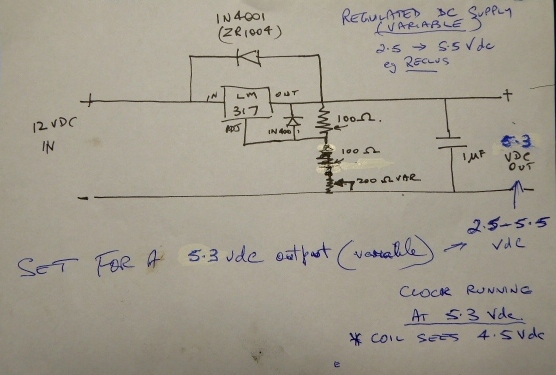 1N4001
(ZR1004)
REGULATED DC SUPPLY
(VARIABLE)
2.5 → 5.5 Vdc
eg RECLUS
IN
LM
317
OUT
ADJ
1N4001
100Ω.
100Ω
200Ω VAR
1µF
12 VDC
IN
+
-
5.3
VDC
OUT
2.5-5.5
Vdc
SET FOR A 5.3 vdc output (variable) →
CLOCK RUNNING
AT 5.3 Vdc
* COIL SEES 4.5 Vdc